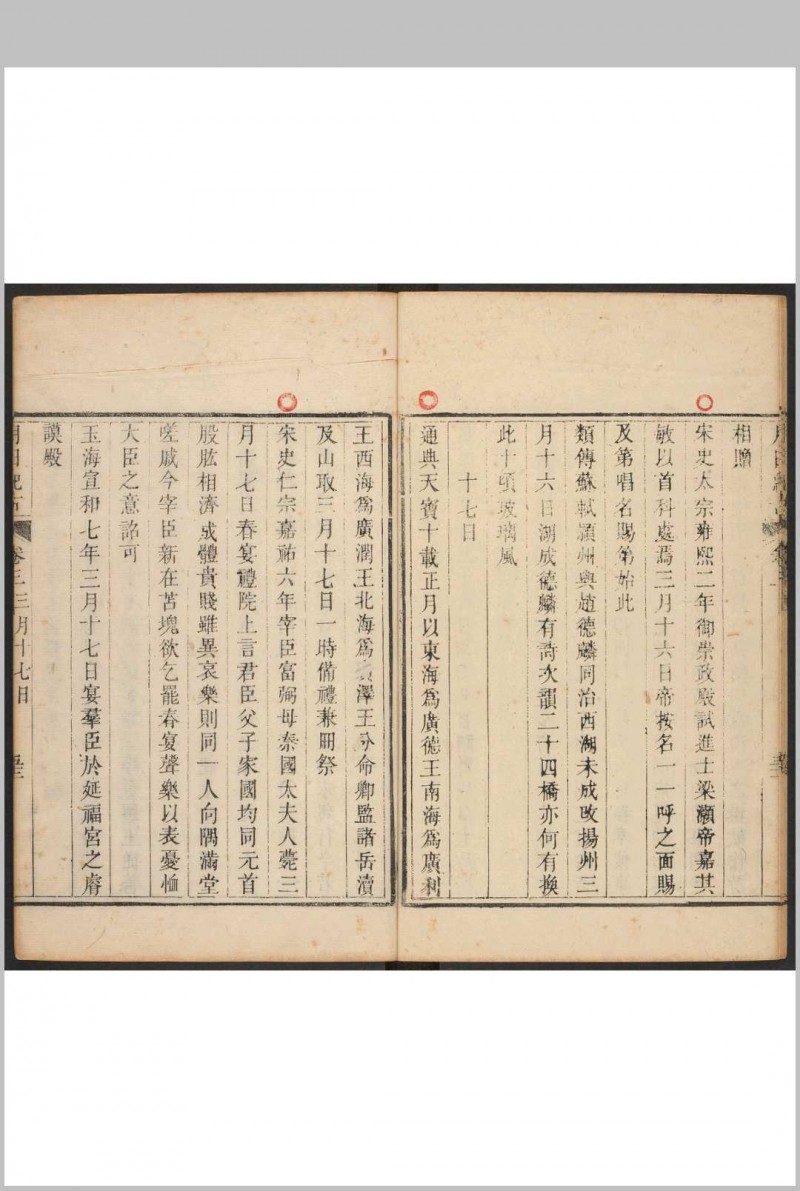 相贈
宋史太宗雍熙二年御崇政殿試進士梁灝帝嘉其
敏以首科處焉三月十六日帝按名一一呼之面賜
及第唱名賜第始此
類傳蘇軾潁州與趙德麟同治西湖未成改揚州三
月十六日湖成德麟有詩次韻二十四橋亦何有換
此十頃玻璃風
十七日
通典天寶十載正月以東海爲廣德王南海爲廣利
王西海爲廣潤王北海爲廣澤王分命卿監諸岳瀆
及山取三月十七日一時備禮兼冊祭
宋史仁宗嘉祐六年宰臣富弼母秦國太夫人薨三
月十七日春宴禮院上言君臣父子家國均同元首
股肱相濟成體貴賤雖異哀樂則同一人向隅滿堂
嗟戚今宰臣新在苫塊欲乞罷春宴聲樂以表憂恤
大臣之意詔可
玉海宣和七年三月十七日宴羣臣於延福宮之睿
謨殿
月日紀古 卷三 三月十七日